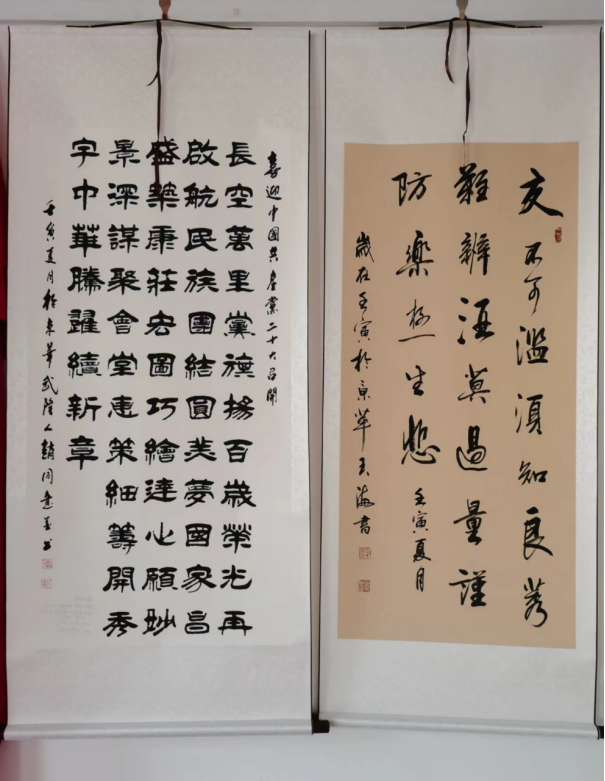 友不可滥须知良莠
難辨酒莫過量謹
防樂極生悲壬寅夏月
歲在壬寅於京華玉海書
喜迎中國共産黨二十大召開
長空萬里黨旗揚百歲榮光再
啟航民族團結圓美夢國家昌
盛築康莊宏圖巧繪達心願妙
景深謀聚會堂惠策細籌開秀
字中華騰躍續新章
壬寅夏月於京華武隆人趙同進並书